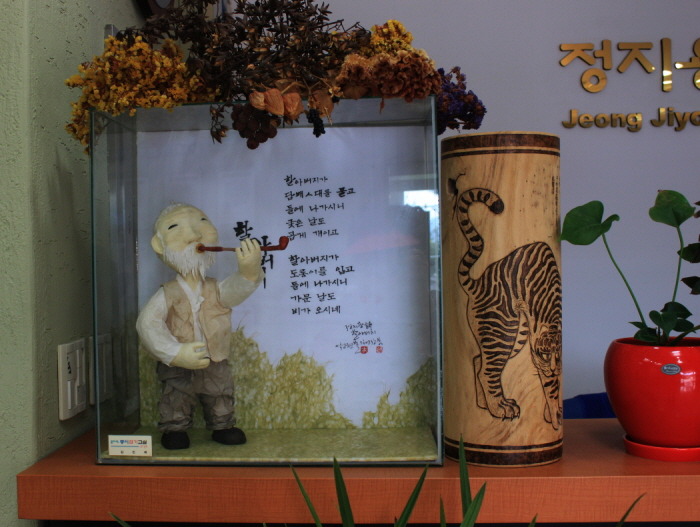 정지용
Jeong Jiyo
할아버지
할아버지가
담배ㅅ대를 물고
들에 나가시니
궂은 날도
곱게 개이고
할아버지가
도롱이를 입고
들에 나가시니
가문 날도
비가 오시네